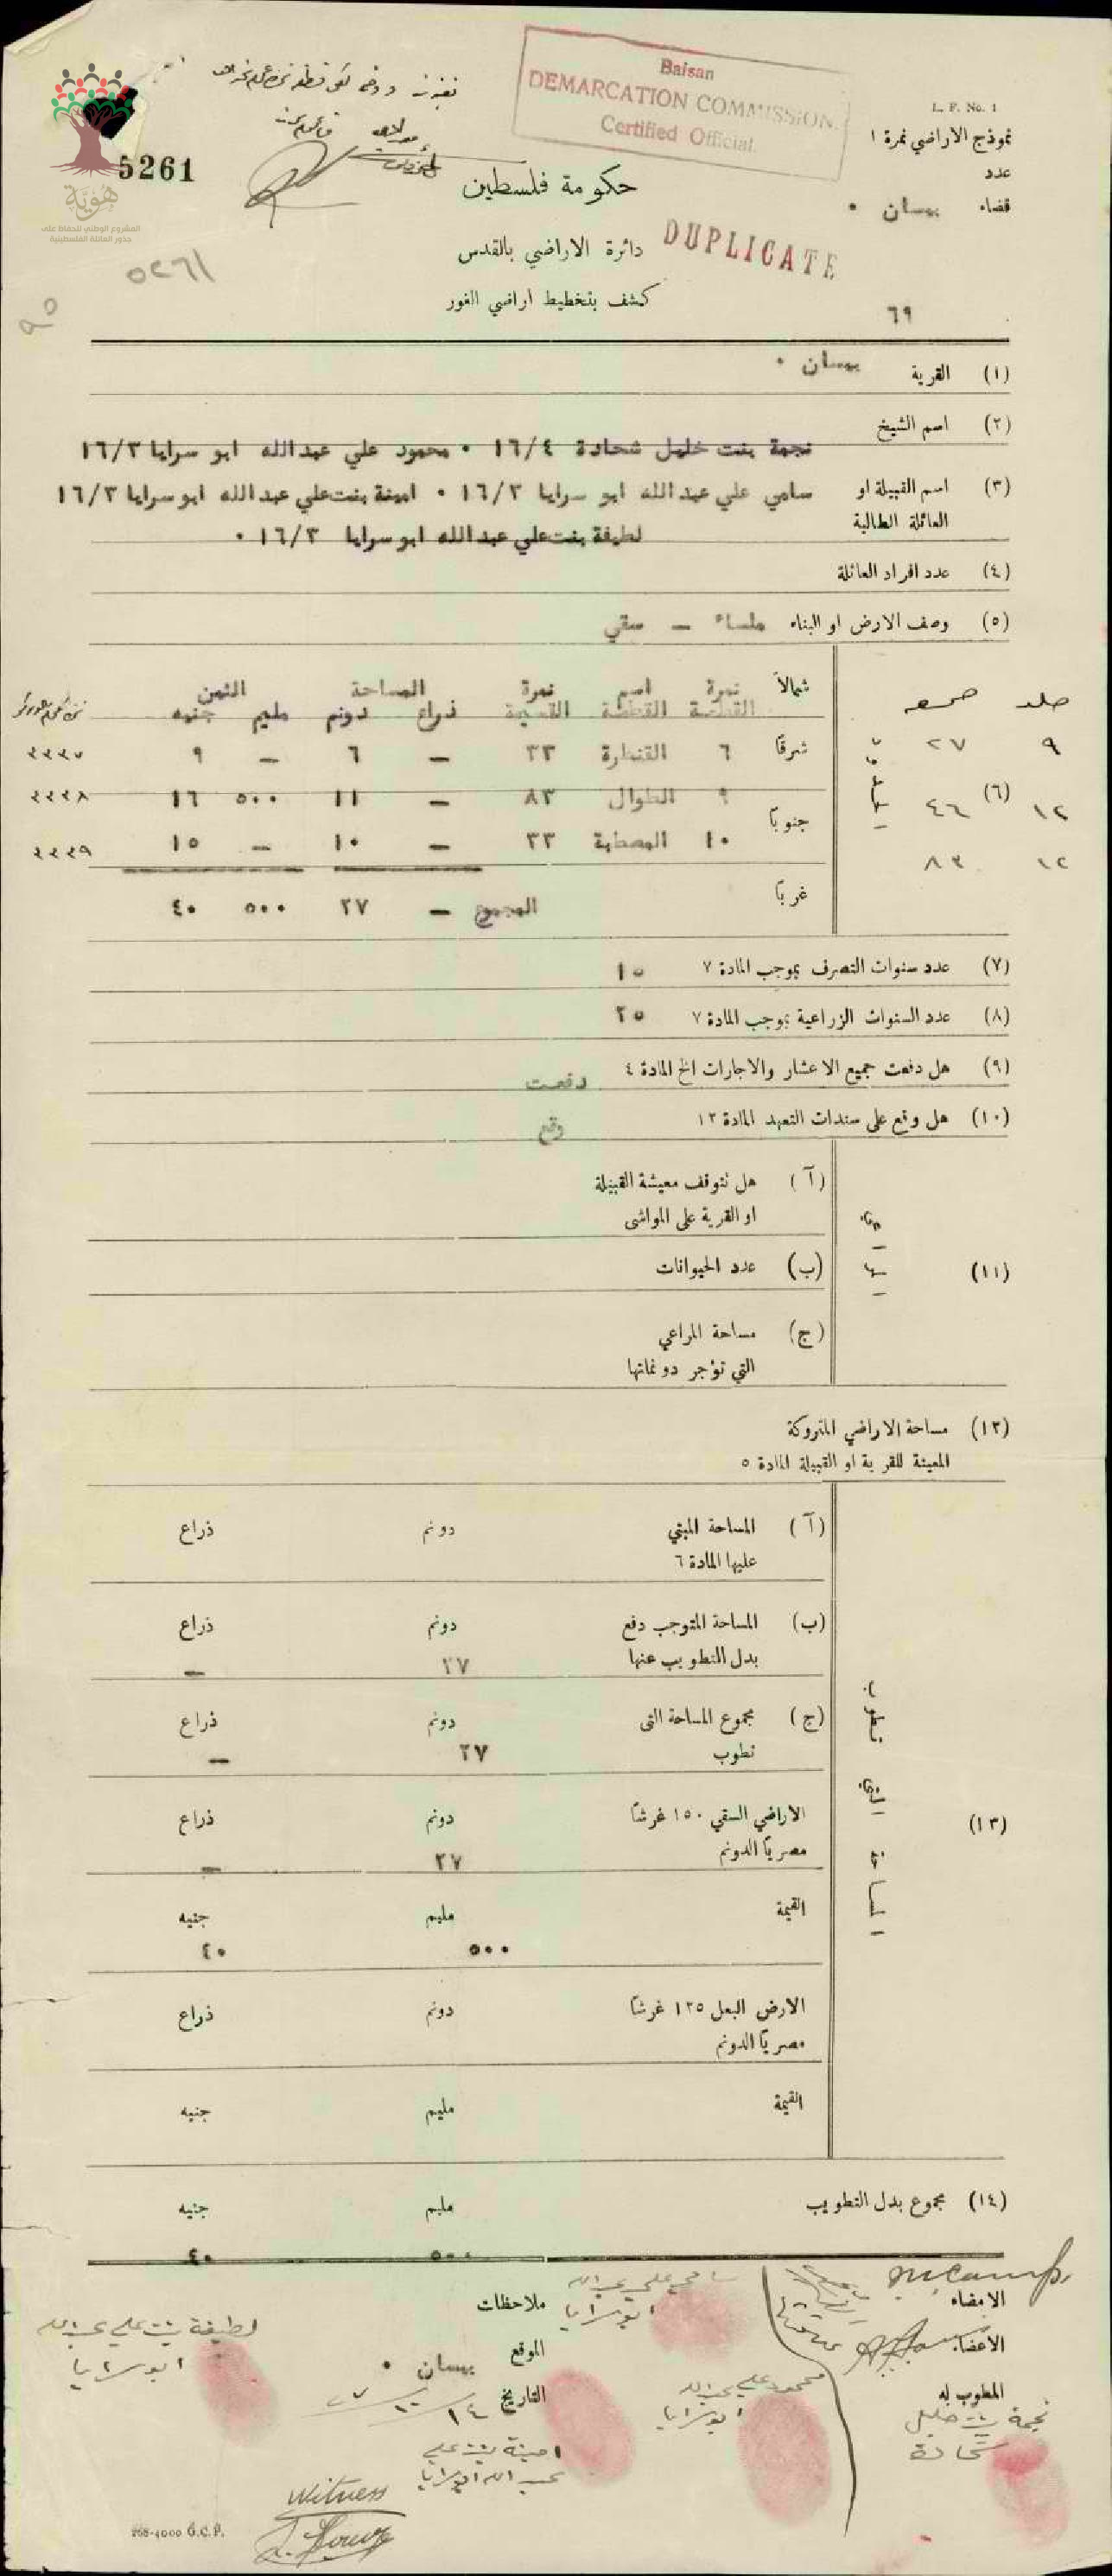 Baisan
DEMARCATION COMMISSION
Certified Official.
L. F. No. 1
نموذج الاراضي نمرة ١
عدد
قضاء بيسان ٠
5261
هُويّة
المشروع الوطني للحفاظ على
جذور العائلة الفلسطينية
حكومة فلسطين
DUPLICATE
دائرة الاراضي بالقدس
٥٢٦١
كشف بتخطيط اراضي الغور
٦٩
(١) القرية بيسان ٠
(٢) اسم الشيخ
نجمة بنت خليل شحادة ١٦/٤ ٠ محمود علي عبدالله ابو سرايا ١٦/٣
(٣) اسم القبيلة او سامي علي عبدالله ابو سرايا ١٦/٣ ٠ امينة بنت علي عبدالله ابو سرايا ١٦/٣
العائلة الطالبة لطيفة بنت علي عبدالله ابو سرايا ١٦/٣ ٠
(٤) عدد افراد العائلة
(٥) وصف الارض او البناء ملساء — سقي
شمالاً نمرة اسم نمرة المساحة الثمن
القطعة القطعة القسيمة ذراع دونم مليم جنيه
٩ ٢٧ شرقاً ٦ القنطارة ٣٣ — ٦ — ٩ ٣٣٣٧
(٦) ١٢ ٤٦ ٩ الطوال ٨٣ — ١١ ٥٠٠ ١٦ ٣٣٣٨
جنوباً ١٠ المصطبة ٣٣ — ١٠ — ١٥ ٣٣٣٩
١٢ ٨٣
غرباً المجموع — ٢٧ ٥٠٠ ٤٠
(٧) عدد سنوات التصرف بموجب المادة ٧ ١٥
(٨) عدد السنوات الزراعية بموجب المادة ٧ ٢٥
(٩) هل دفعت جميع الاعشار والاجارات الخ المادة ٤ دفعت
(١٠) هل وقع على سندات التعهد المادة ١٣ وقع
(آ) هل تتوقف معيشة القبيلة
او القرية على المواشى
(١١) (ب) عدد الحيوانات
(ج) مساحة المراعي
التي تؤجر دونماتها
(١٢) مساحة الاراضي المتروكة
المعينة للقرية او القبيلة المادة ٥
(آ) المساحة المبني دونم ذراع
عليها المادة ٦
(ب) المساحة المتوجب دفع دونم ذراع
بدل التطويب عنها ٢٧ —
(ج) مجموع المساحة التى دونم ذراع
تطوب ٢٧ —
(١٣) الاراضي السقي ١٥٠ غرشاً دونم ذراع
مصرياً الدونم ٢٧ —
القيمة مليم جنيه
٥٠٠ ٤٠
الارض البعل ١٢٥ غرشاً دونم ذراع
مصرياً الدونم
القيمة مليم جنيه
(١٤) مجموع بدل التطويب مليم جنيه
٥٠٠ ٤٠
الامضاء
سامي علي عبدالله
ابو سرايا
ملاحظات
لطيفة بنت علي عبدالله
ابو سرايا
الاعضاء
الموقع بيسان ٠
المطوب له
نجمة بنت خليل
شحادة
محمود علي عبدالله
ابو سرايا
التاريخ
امينة بنت علي
عبدالله ابو سرايا
Witness
268-4000 G.C.P.